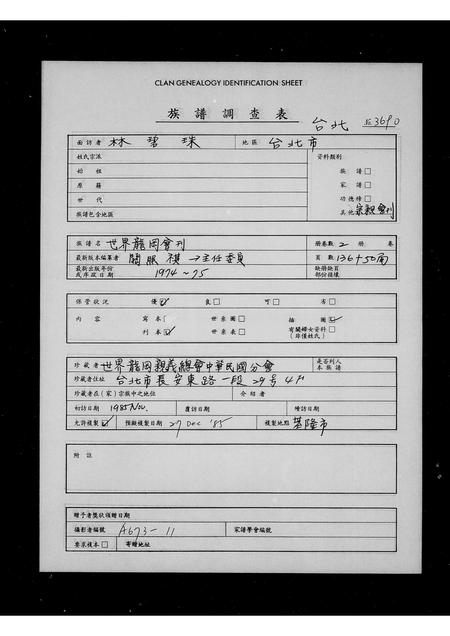 CLAN GENEALOGY IDENTIFICATION SHEET
族譜調查表 台北
面訪者 林碧珠 地區 台北市
姓氏宗派 資料類別
始祖 族譜□
原籍 家譜□
世代 功德榜□
族譜包含地區 其他 宗親會刊
族譜名 世界龍岡會刊 冊卷數 2 冊 卷
最新版本編纂者 主任委員 頁數 136+50面
最新出版年份 1974~75 缺冊缺頁
或序政日期 部份損壞
保管狀況 優☑ 良□ 可□ 劣□
內容 寫本□ 世系圖□ 插圖☑
刊本☑ 世系表□ 有關婦女資料□
(非僅姓氏)
珍藏者 世界龍岡親義總會中華民國分會 是否列入
本族譜
珍藏者住址 台北市長安東路一段29号4F
珍藏者在(家)宗族中之地位 介紹者
初訪日期 1985 Nov. 覆訪日期 續訪日期
允許複製☑ 預擬複製日期 27 Dec '85 複製地點 基隆市
附註
贈予者獎狀頒贈日期
攝影者編號 A673-11 家譜學會編號
要求複本□ 寄贈地址